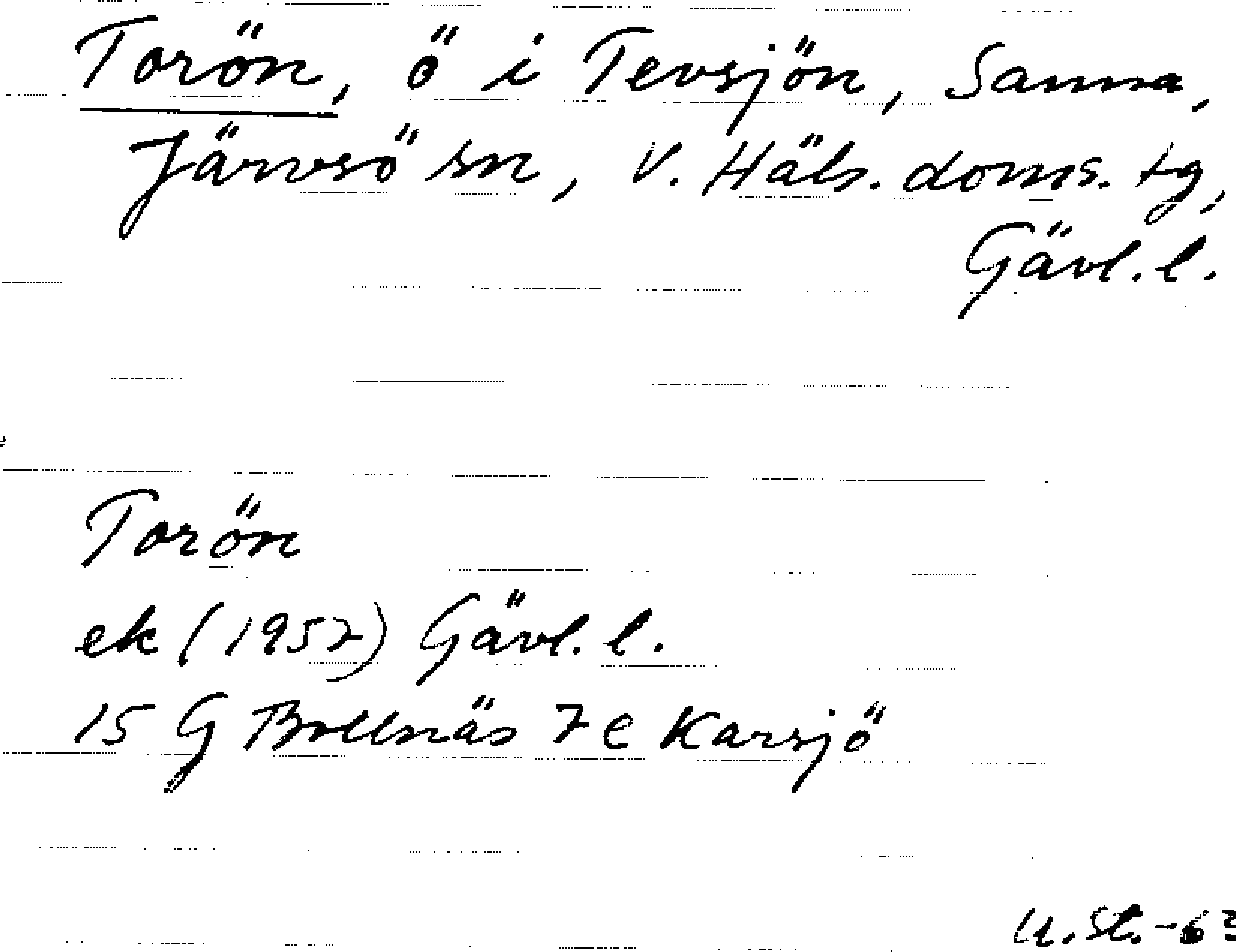 Torön, ö i Tevsjön, Sanna,
Järvsö sn, V. Häls. doms. tg,
Gävl. l.
Torön
ek (1957) Gävl. l.
15 G Bollnäs 7 e Karsjö
U. St. -63